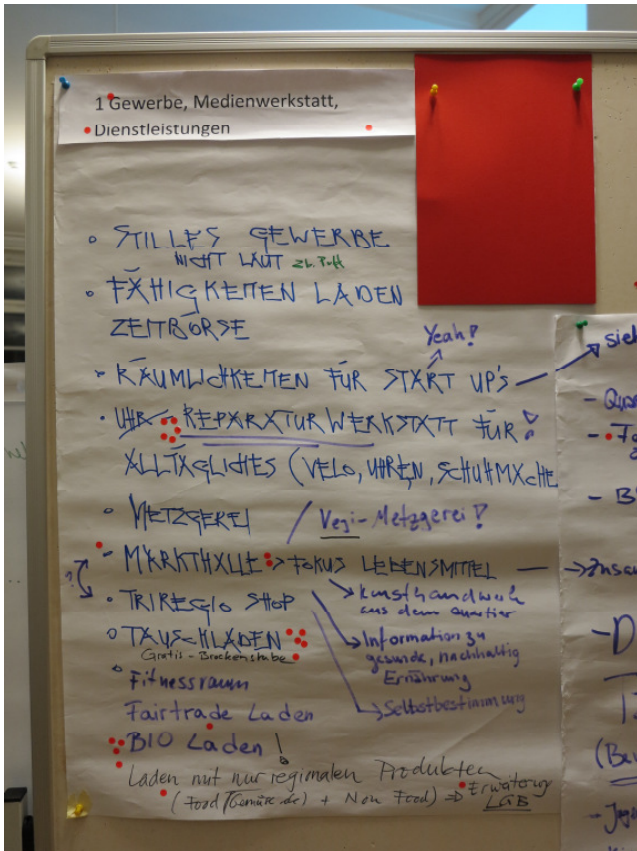 1 Gewerbe, Medienwerkstatt,
Dienstleistungen
• STILLES GEWERBE
NICHT LAUT
• FÄHIGKEITEN LADEN
ZEITBÖRSE
Yeah!
• RÄUMLICHKEITEN FÜR START UP'S
• UHR- REPARATUR WERKSTATT FÜR
ALLTÄGLICHES (VELO, UHREN, SCHUHMACHE
• METZGEREI / Vegi-Metzgerei!
• MARKTHALLE > FOKUS LEBENSMITTEL
Kunsthandwerk
aus dem Quartier
?
• TRIREGIO SHOP
• TAUSCHLADEN
Gratis-Brockenstube
Information zu
gesunde, nachhaltig
Ernährung
• Fitnessraum
Fairtrade Laden
Selbstbestimmung
BIO Laden !
Laden mit nur regionalen Produkten
(Food / Gemüse) + Non Food) => Erweiterung
LGB